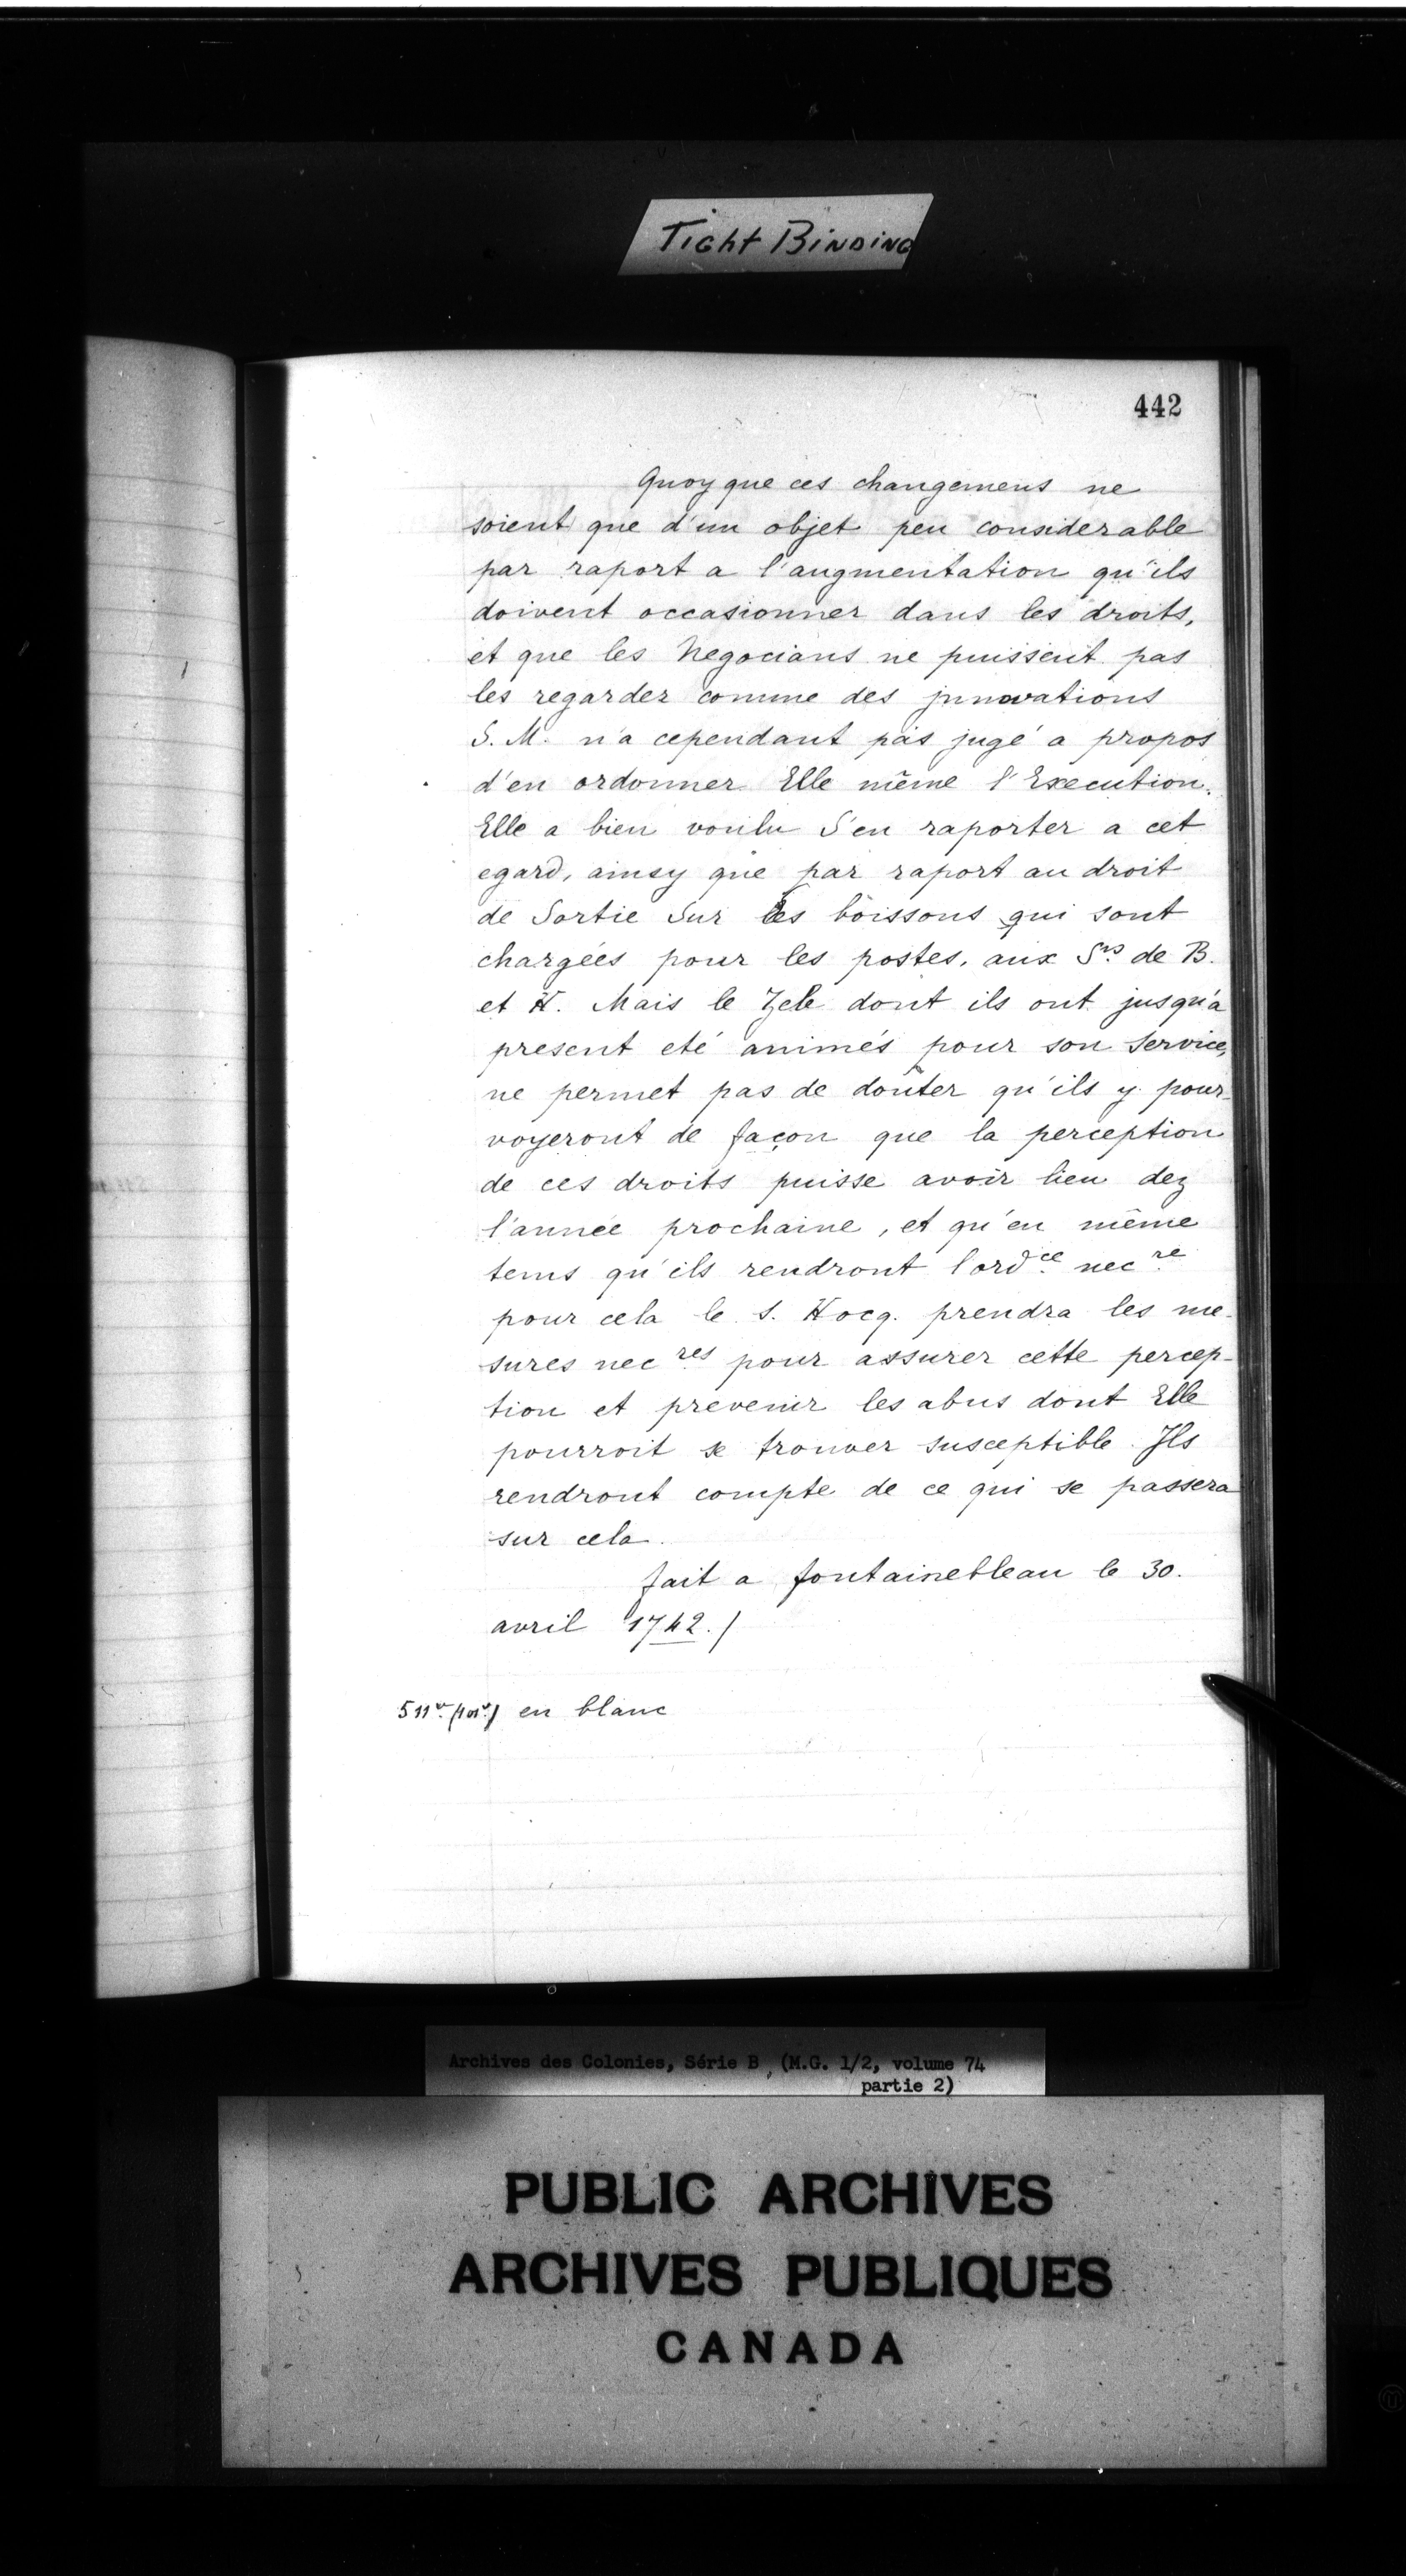 Tight Binding
442
Quoyque ces changemens ne
soient que d'un objet peu considerable
par raport a l'augmentation qu'ils
doivent occasionner dans les droits,
et que les Negocians ne puissent pas
les regarder comme des jnnovations
S. M. n'a cependant pas jugé a propos
d'en ordonner Elle même l'Execution.
Elle a bien voulu S'en raporter a cet
egard, ainsy que par raport au droit
de Sortie Sur les boissons qui sont
chargées pour les postes, aux Srs de B.
et H. Mais le Zele dont ils ont jusqu'a
present eté animés pour son Service,
ne permet pas de douter qu'ils y pour-
voyeront de façon que la perception
de ces droits puisse avoir lieu dez
l'année prochaine, et qu'en même
tems qu'ils rendront l'ordce necre
pour cela le S. Hocq. prendra les me-
sures necres pour assurer cette percep-
tion et prevenir les abus dont Elle
pourroit se trouver susceptible. Jls
rendront compte de ce qui se passera
sur cela.
fait a fontainebleau le 30.
avril 1742./
511v. en blanc
Archives des Colonies, Série B, (M.G. 1/2, volume 74
partie 2)
PUBLIC ARCHIVES
ARCHIVES PUBLIQUES
CANADA